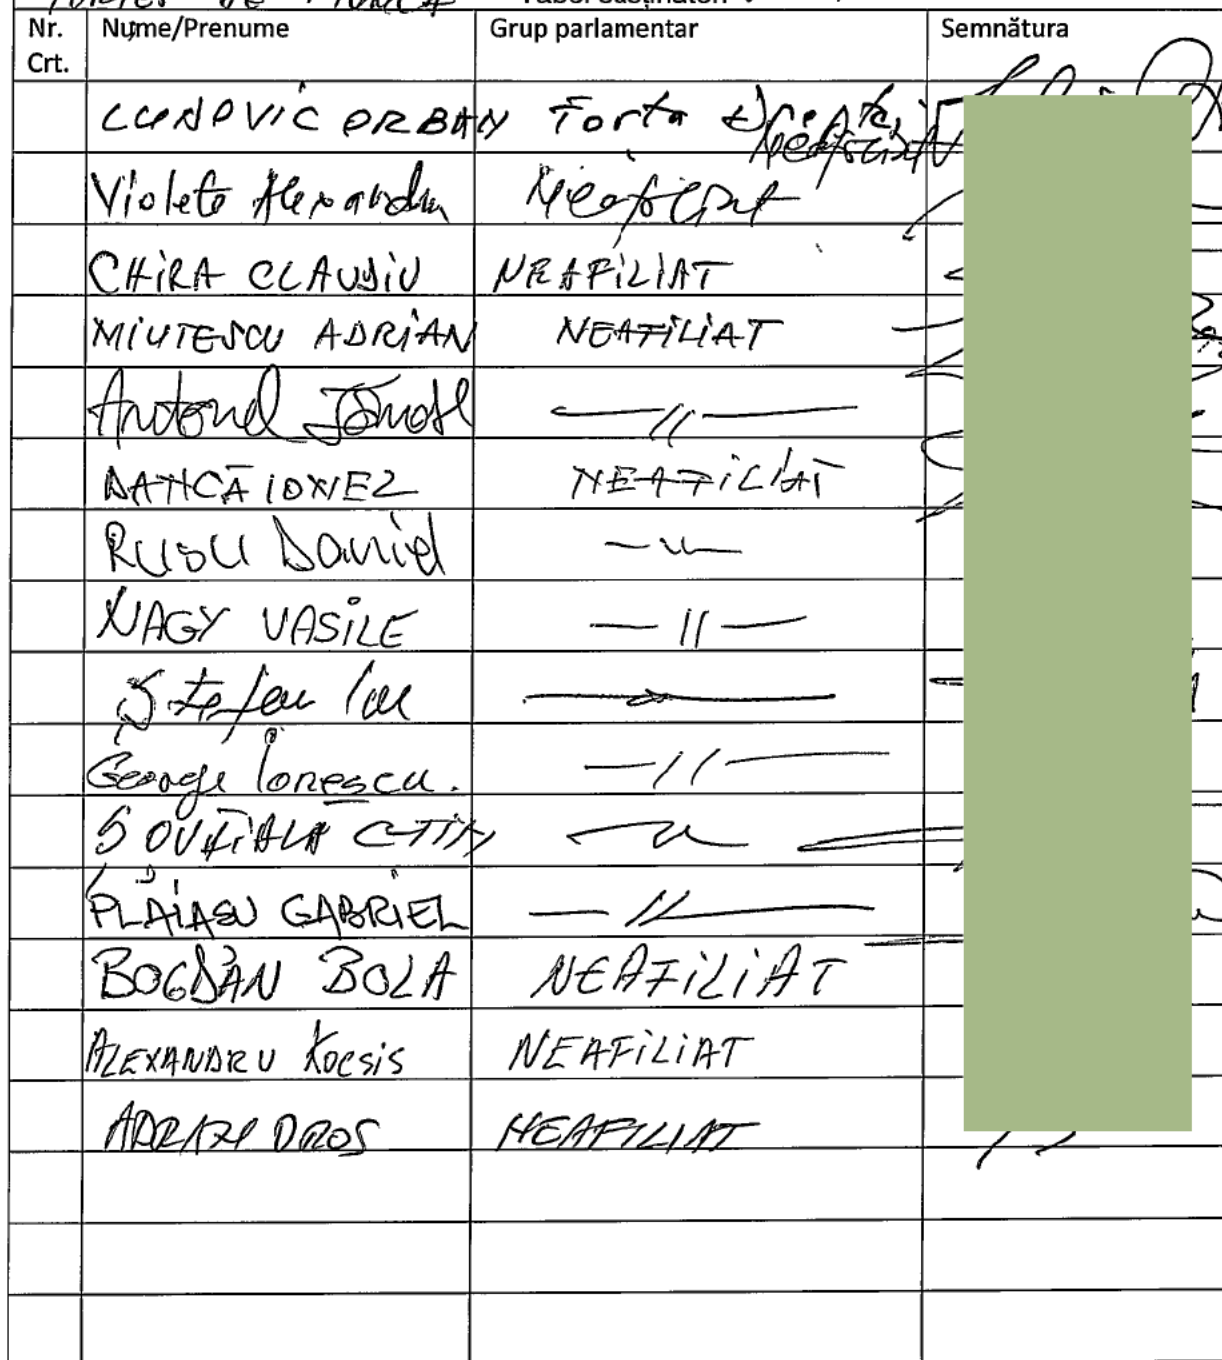 DE MUNCĂ Tabel susținători
Nr. Crt. Nume/Prenume Grup parlamentar Semnătura
LUDOVIC ORBAN Forța Dreptei Neafiliat
Violeta Alexandru Neafiliat
CHIRA CLAUDIU NEAFILIAT
MIUTESCU ADRIAN NEAFILIAT
Antonel —//—
DANCĂ IONEL NEAFILIAT
RUSU Daniel —„—
NAGY VASILE —//—
Ștefan
George Ionescu. —//—
ȘOVĂIALĂ C-TIN —„—
PLĂIAȘU GABRIEL —//—
BOGDAN BOLA NEAFILIAT
ALEXANDRU KOCSIS NEAFILIAT
NEAFILIAT